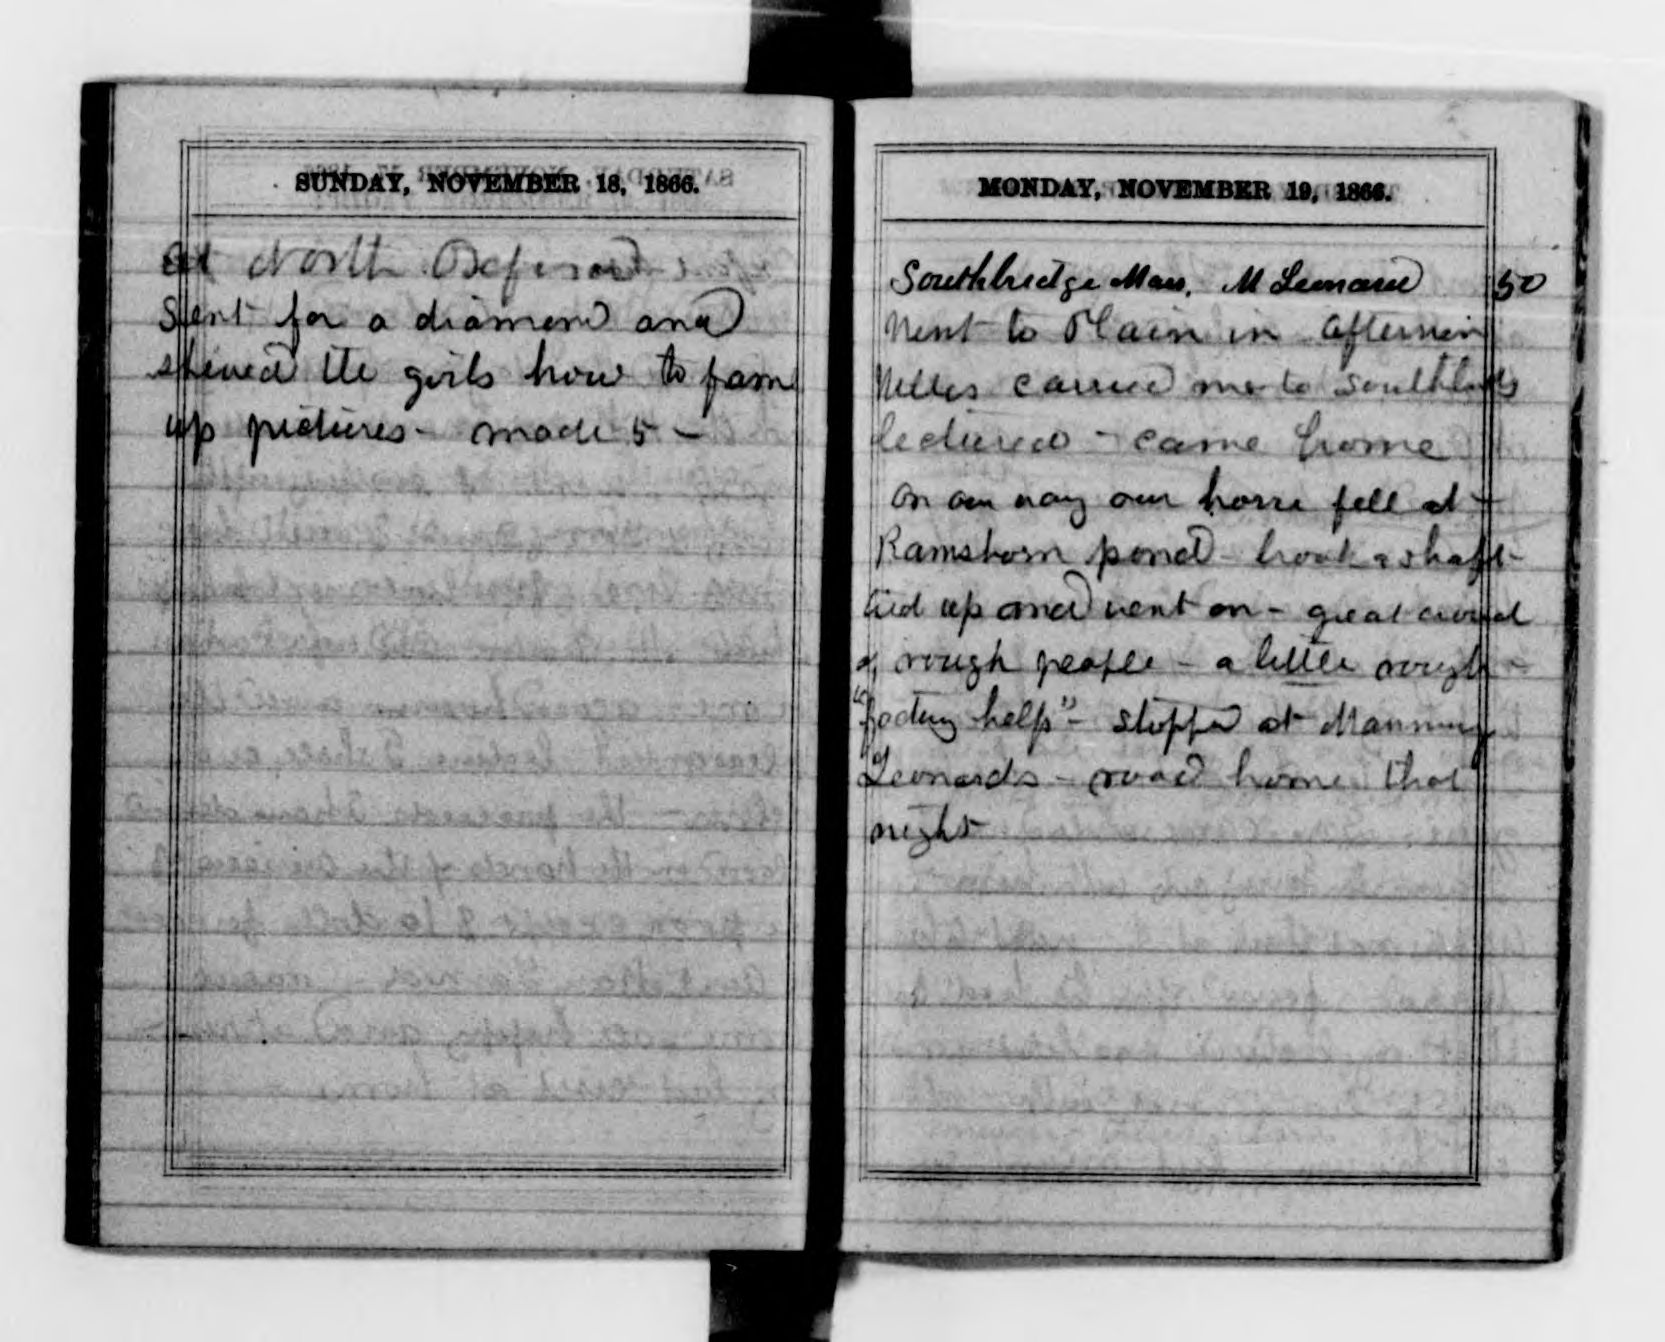 SUNDAY, NOVEMBER 18, 1866.
At North Oxford
Sent for a diamond and
shewed the girls how to fram
up pictures - made 5 -
MONDAY, NOVEMBER 19, 1866.
Southbridge Mass. M Leonard 50
Went to Plain in afternoon
carried me to Southbridg
lectured - came home
on our way our horse fell at -
Ramshorn pond - broke a shaft -
tied up and went on - great crowd
of rough people - a little rough -
"factory help" - stopped at Manning
Leonards - road home that
night